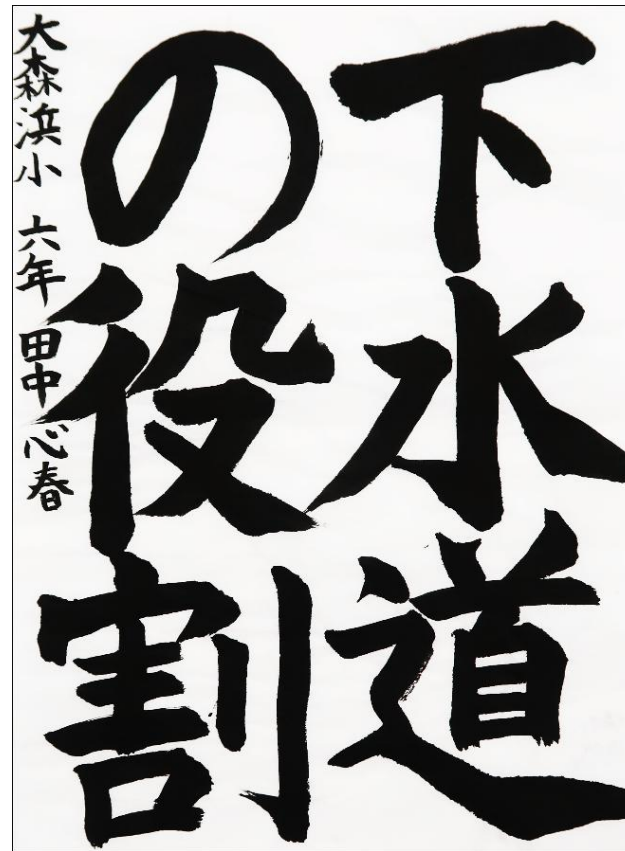 下水道
の役割
大森浜小 六年 田中心春